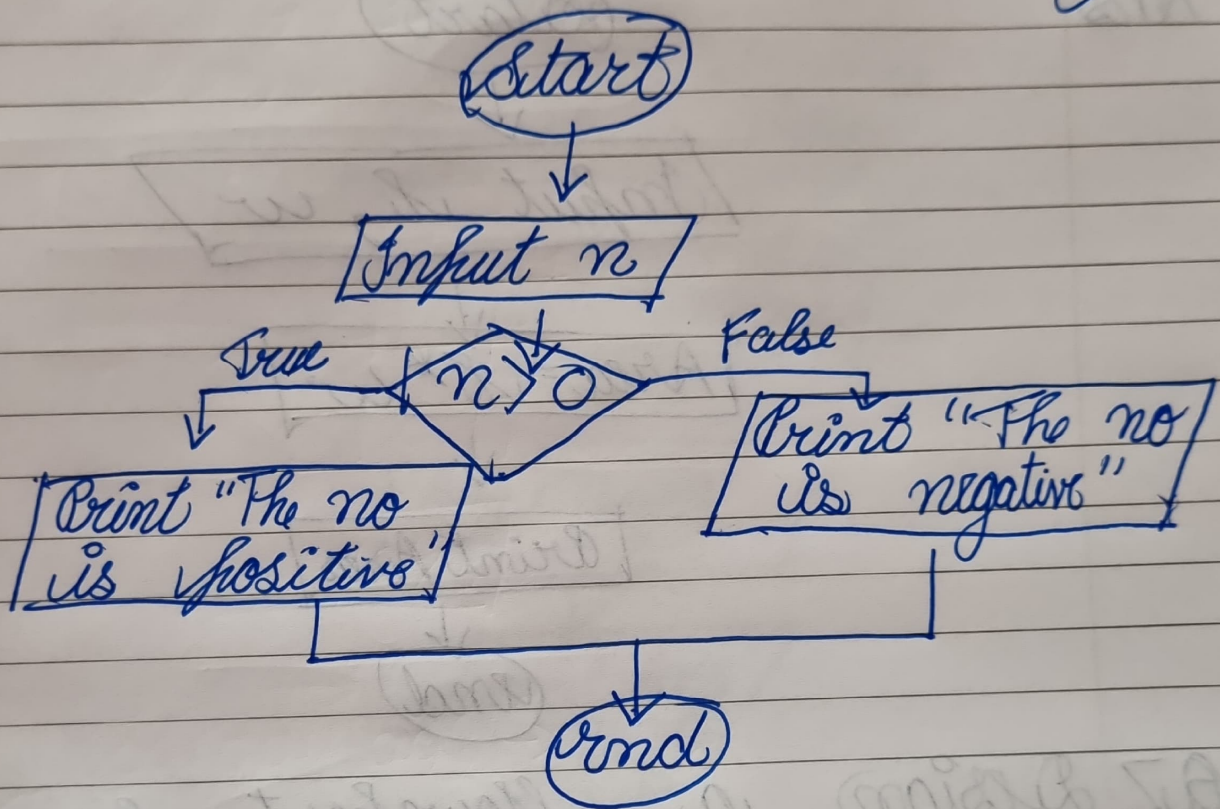 Start
Input n
True
False
n>0
Print "The no
is negative"
Print "The no
is positive"
End